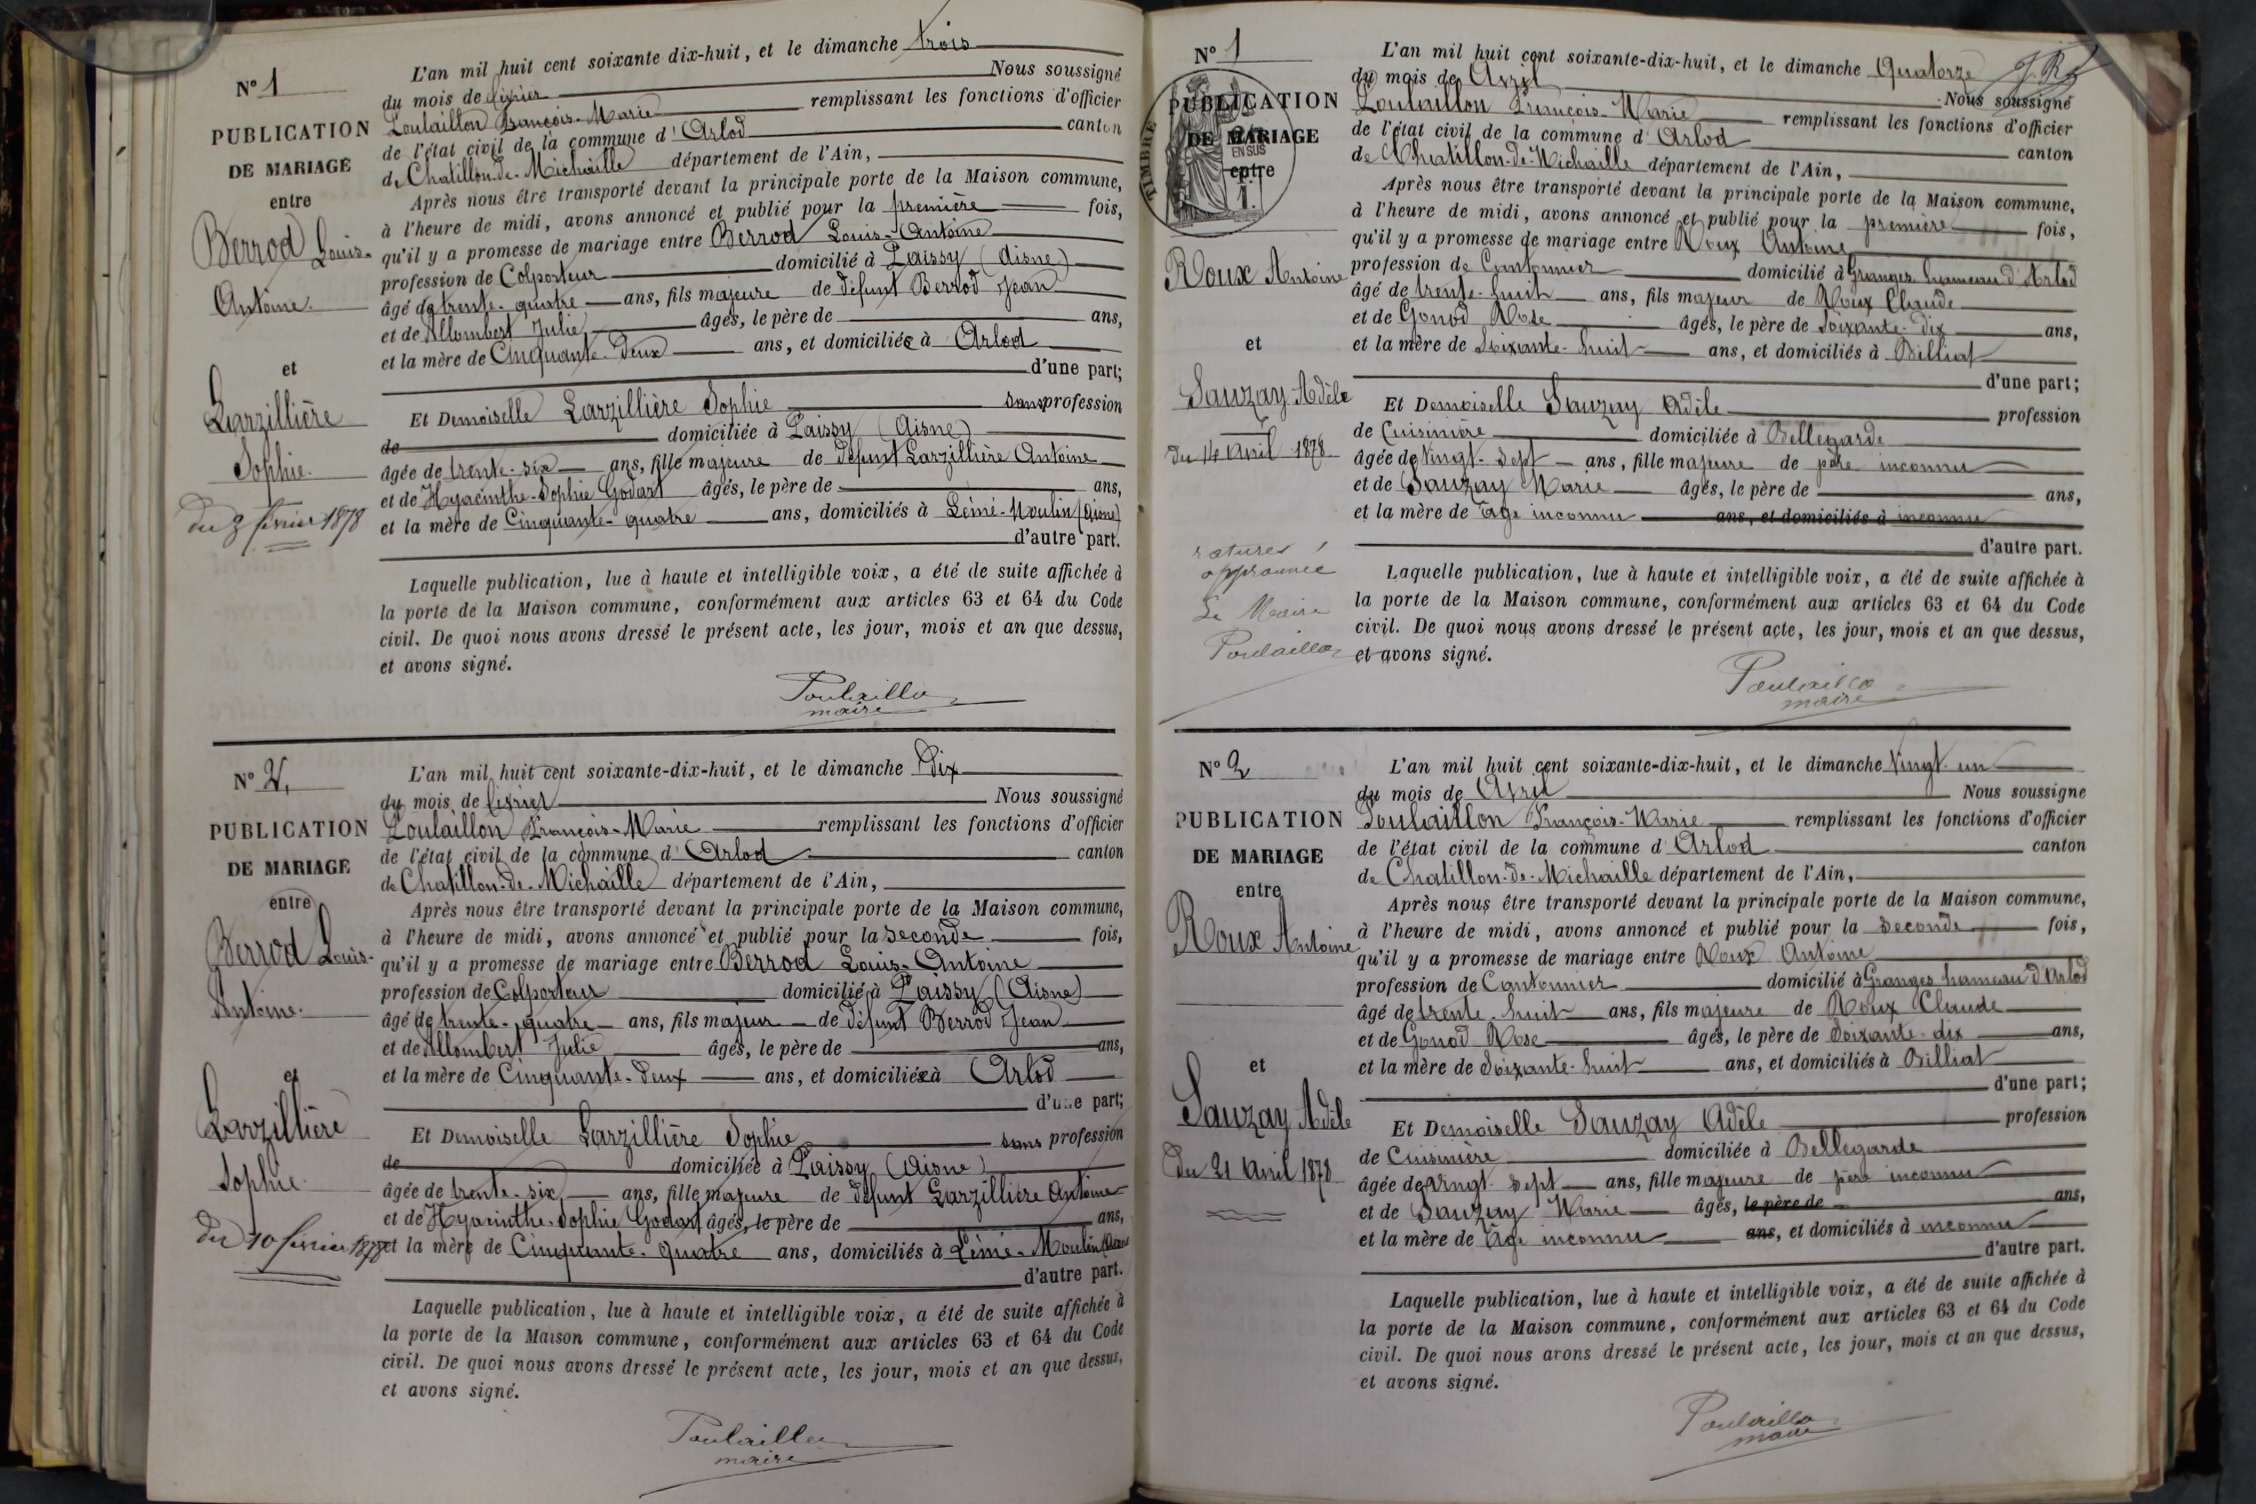 N° 1
PUBLICATION
DE MARIAGE
entre
Berrod Louis-
Antoine.
et
Larzillière
Sophie.
du 3 février 1878
L'an mil huit cent soixante dix-huit, et le dimanche trois
du mois de février Nous soussigné
Poulaillon François-Marie remplissant les fonctions d'officier
de l'état civil de la commune d'Arlod canton
de Chatillon-de-Michaille département de l'Ain,
Après nous être transporté devant la principale porte de la Maison commune,
à l'heure de midi, avons annoncé et publié pour la première fois,
qu'il y a promesse de mariage entre Berrod Louis-Antoine
profession de Colporteur domicilié à Paissy (Aisne)
âgé de trente-quatre ans, fils majeure de défunt Berrod Jean
et de Allombert Julie âgés, le père de ans,
et la mère de Cinquante-deux ans, et domiciliée à Arlod
d'une part;
Et Demoiselle Larzillière Sophie sans profession
de domiciliée à Paissy (Aisne)
âgée de trente-six ans, fille majeure de défunt Larzillière Antoine
et de Hyacinthe-Sophie Godart âgés, le père de ans,
et la mère de Cinquante-quatre ans, domiciliés à Moulin (Aisne)
d'autre part.
Laquelle publication, lue à haute et intelligible voix, a été de suite affichée à
la porte de la Maison commune, conformément aux articles 63 et 64 du Code
civil. De quoi nous avons dressé le présent acte, les jour, mois et an que dessus,
et avons signé.
Poulaillon
maire
N° 2
PUBLICATION
DE MARIAGE
entre
Berrod Louis-
Antoine.
et
Larzillière
Sophie.
Du 10 février 1878
L'an mil huit cent soixante-dix-huit, et le dimanche dix
du mois de février Nous soussigné
Poulaillon François-Marie remplissant les fonctions d'officier
de l'état civil de la commune d'Arlod canton
de Chatillon-de-Michaille département de l'Ain,
Après nous être transporté devant la principale porte de la Maison commune,
à l'heure de midi, avons annoncé et publié pour la seconde fois,
qu'il y a promesse de mariage entre Berrod Louis-Antoine
profession de Colporteur domicilié à Paissy (Aisne)
âgé de trente-quatre ans, fils majeur de défunt Berrod Jean
et de Allombert Julie âgés, le père de ans,
et la mère de Cinquante-deux ans, et domiciliée à Arlod
d'une part;
Et Demoiselle Larzillière Sophie sans profession
de domiciliée à Paissy (Aisne)
âgée de trente-six ans, fille majeure de défunt Larzillière Antoine
et de Hyacinthe-Sophie Godart âgés, le père de ans,
et la mère de Cinquante-quatre ans, domiciliés à Moulin
d'autre part.
Laquelle publication, lue à haute et intelligible voix, a été de suite affichée à
la porte de la Maison commune, conformément aux articles 63 et 64 du Code
civil. De quoi nous avons dressé le présent acte, les jour, mois et an que dessus,
et avons signé.
Poulaillon
maire
N° 1
TIMBRE
EN SUS
PUBLICATION
DE MARIAGE
entre
Roux Antoine
et
Sauzay Adèle
du 14 avril 1878
ratures
approuvée
Le Maire
Poulaillon
L'an mil huit cent soixante-dix-huit, et le dimanche Quatorze
du mois de Avril Nous soussigné
Poulaillon François-Marie remplissant les fonctions d'officier
de l'état civil de la commune d'Arlod canton
de Chatillon-de-Michaille département de l'Ain,
Après nous être transporté devant la principale porte de la Maison commune,
à l'heure de midi, avons annoncé et publié pour la première fois,
qu'il y a promesse de mariage entre Roux Antoine
profession de Cantonnier domicilié à Granges hameau d'Arlod
âgé de trente-huit ans, fils majeur de Roux Claude
et de Gonod Rose âgés, le père de Soixante-dix ans,
et la mère de Soixante-huit ans, et domiciliés à Billiat
d'une part;
Et Demoiselle Sauzay Adèle profession
de Cuisinière domiciliée à Bellegarde
âgée de Vingt-Sept ans, fille majeure de père inconnu
et de Sauzay Marie âgés, le père de ans,
et la mère de âge inconnu ans, et domiciliés à inconnu
d'autre part.
Laquelle publication, lue à haute et intelligible voix, a été de suite affichée à
la porte de la Maison commune, conformément aux articles 63 et 64 du Code
civil. De quoi nous avons dressé le présent acte, les jour, mois et an que dessus,
et avons signé.
Poulaillon
maire
N° 2
PUBLICATION
DE MARIAGE
entre
Roux Antoine
et
Sauzay Adèle
Du 21 avril 1878
L'an mil huit cent soixante-dix-huit, et le dimanche Vingt-un
du mois de Avril Nous soussigné
Poulaillon François-Marie remplissant les fonctions d'officier
de l'état civil de la commune d'Arlod canton
de Chatillon-de-Michaille département de l'Ain,
Après nous être transporté devant la principale porte de la Maison commune,
à l'heure de midi, avons annoncé et publié pour la seconde fois,
qu'il y a promesse de mariage entre Roux Antoine
profession de Cantonnier domicilié à Granges hameau d'Arlod
âgé de trente-huit ans, fils majeure de Roux Claude
et de Gonod Rose âgés, le père de Soixante-dix ans,
et la mère de Soixante-huit ans, et domiciliés à Billiat
d'une part;
Et Demoiselle Sauzay Adèle profession
de Cuisinière domiciliée à Bellegarde
âgée de vingt-sept ans, fille majeure de père inconnu
et de Sauzay Marie âgés, le père de ans,
et la mère de âge inconnu ans, et domiciliés à inconnu
d'autre part.
Laquelle publication, lue à haute et intelligible voix, a été de suite affichée à
la porte de la Maison commune, conformément aux articles 63 et 64 du Code
civil. De quoi nous avons dressé le présent acte, les jour, mois et an que dessus,
et avons signé.
Poulaillon
maire